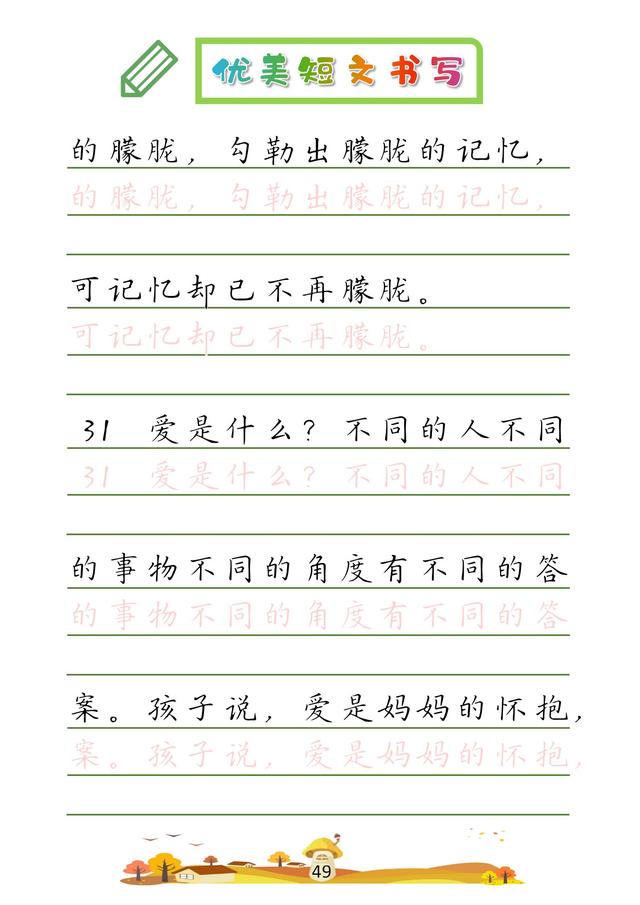 优美短文书写
的朦胧，勾勒出朦胧的记忆，
的朦胧，勾勒出朦胧的记忆，
可记忆却已不再朦胧。
可记忆却已不再朦胧。
31 爱是什么？不同的人不同
31 爱是什么？不同的人不同
的事物不同的角度有不同的答
的事物不同的角度有不同的答
案。孩子说，爱是妈妈的怀抱，
案。孩子说，爱是妈妈的怀抱，
49